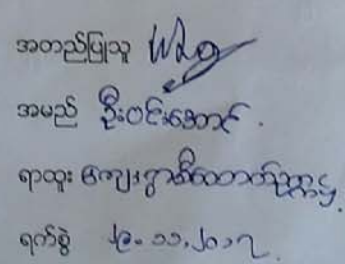 အတည်ပြုသူ
အမည် ဦးဝင်းအောင်
ရာထူး ကျေးရွာစီထောက်ဥက္ကဋ္ဌ
ရက်စွဲ ၂၉.၁၁.၂၀၁၇